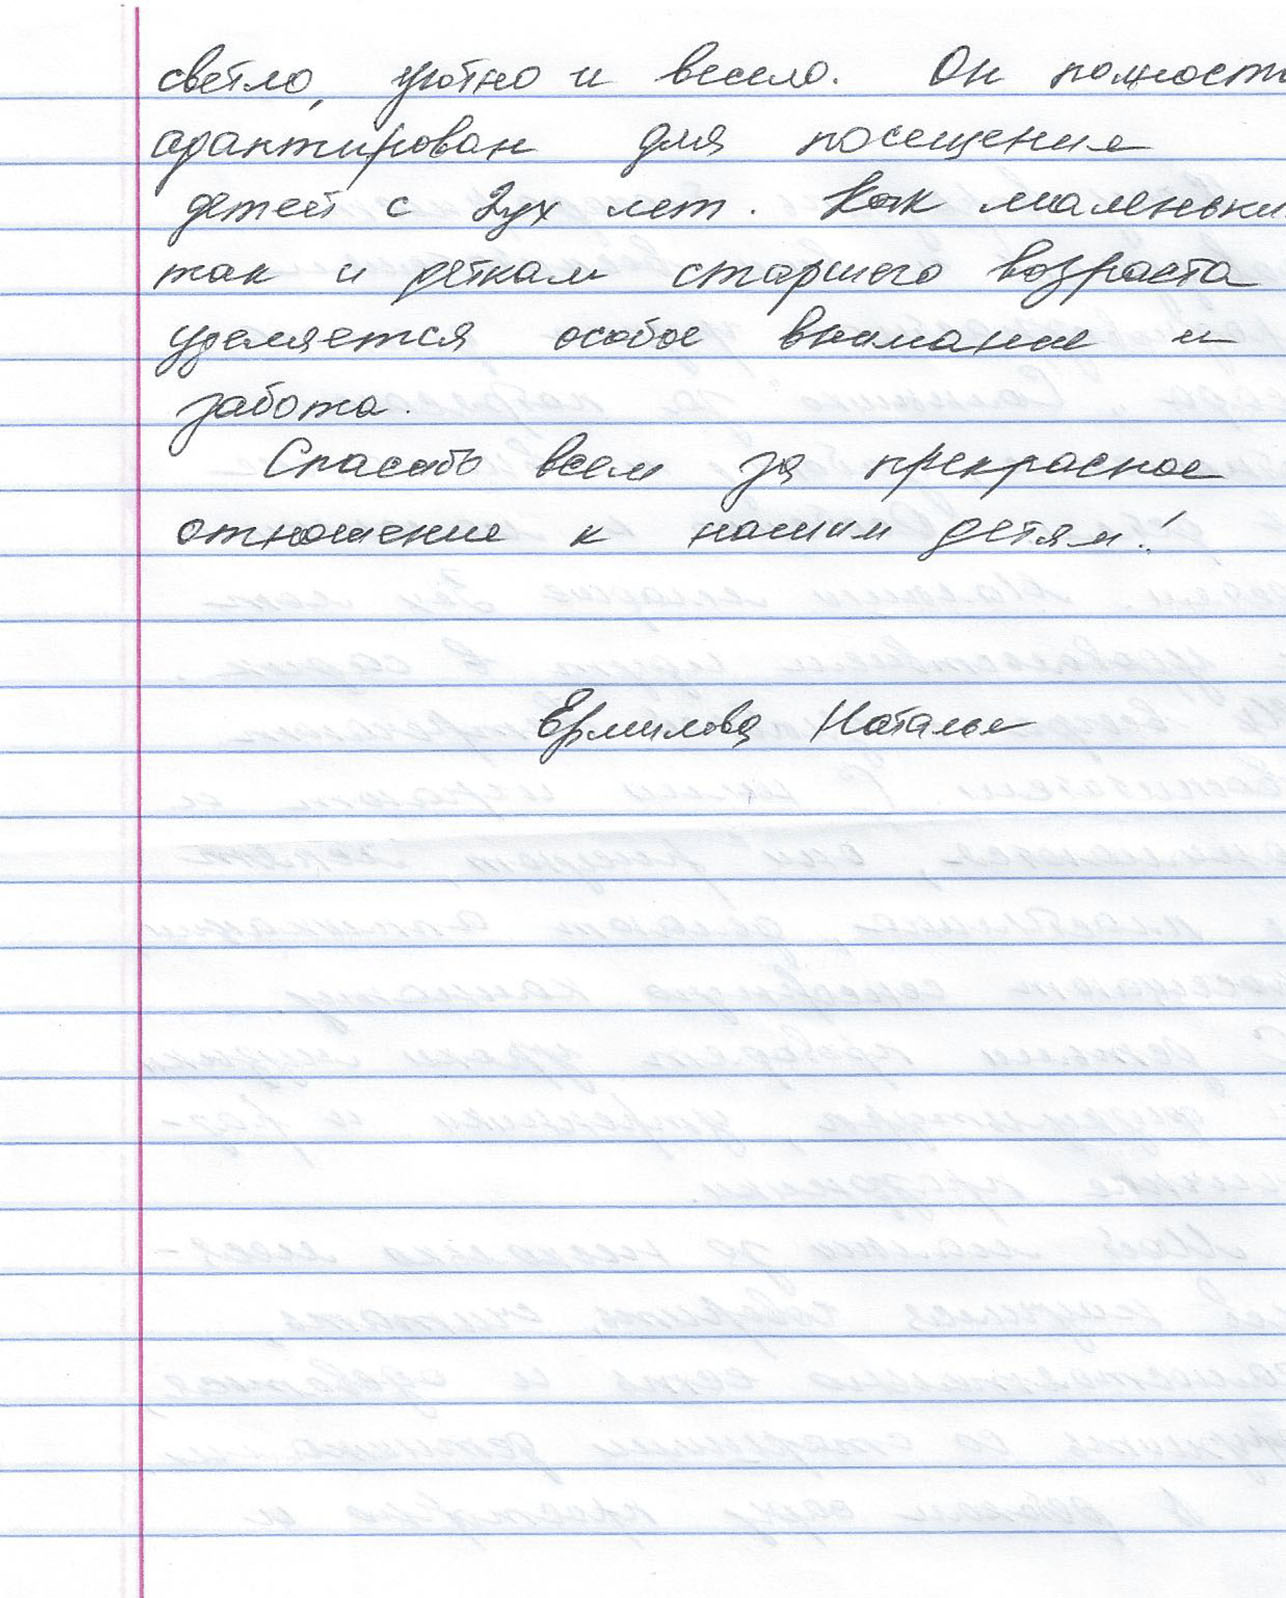 светло, уютно и весело. Он полност
адаптирован для посещения
детей с 2ух лет. Как маленьки
так и деткам старшего возраста
уделяется особое внимание и
забота.
Спасибо всем за прекрасное
отношение к нашим детям!
Ермилова Наталья